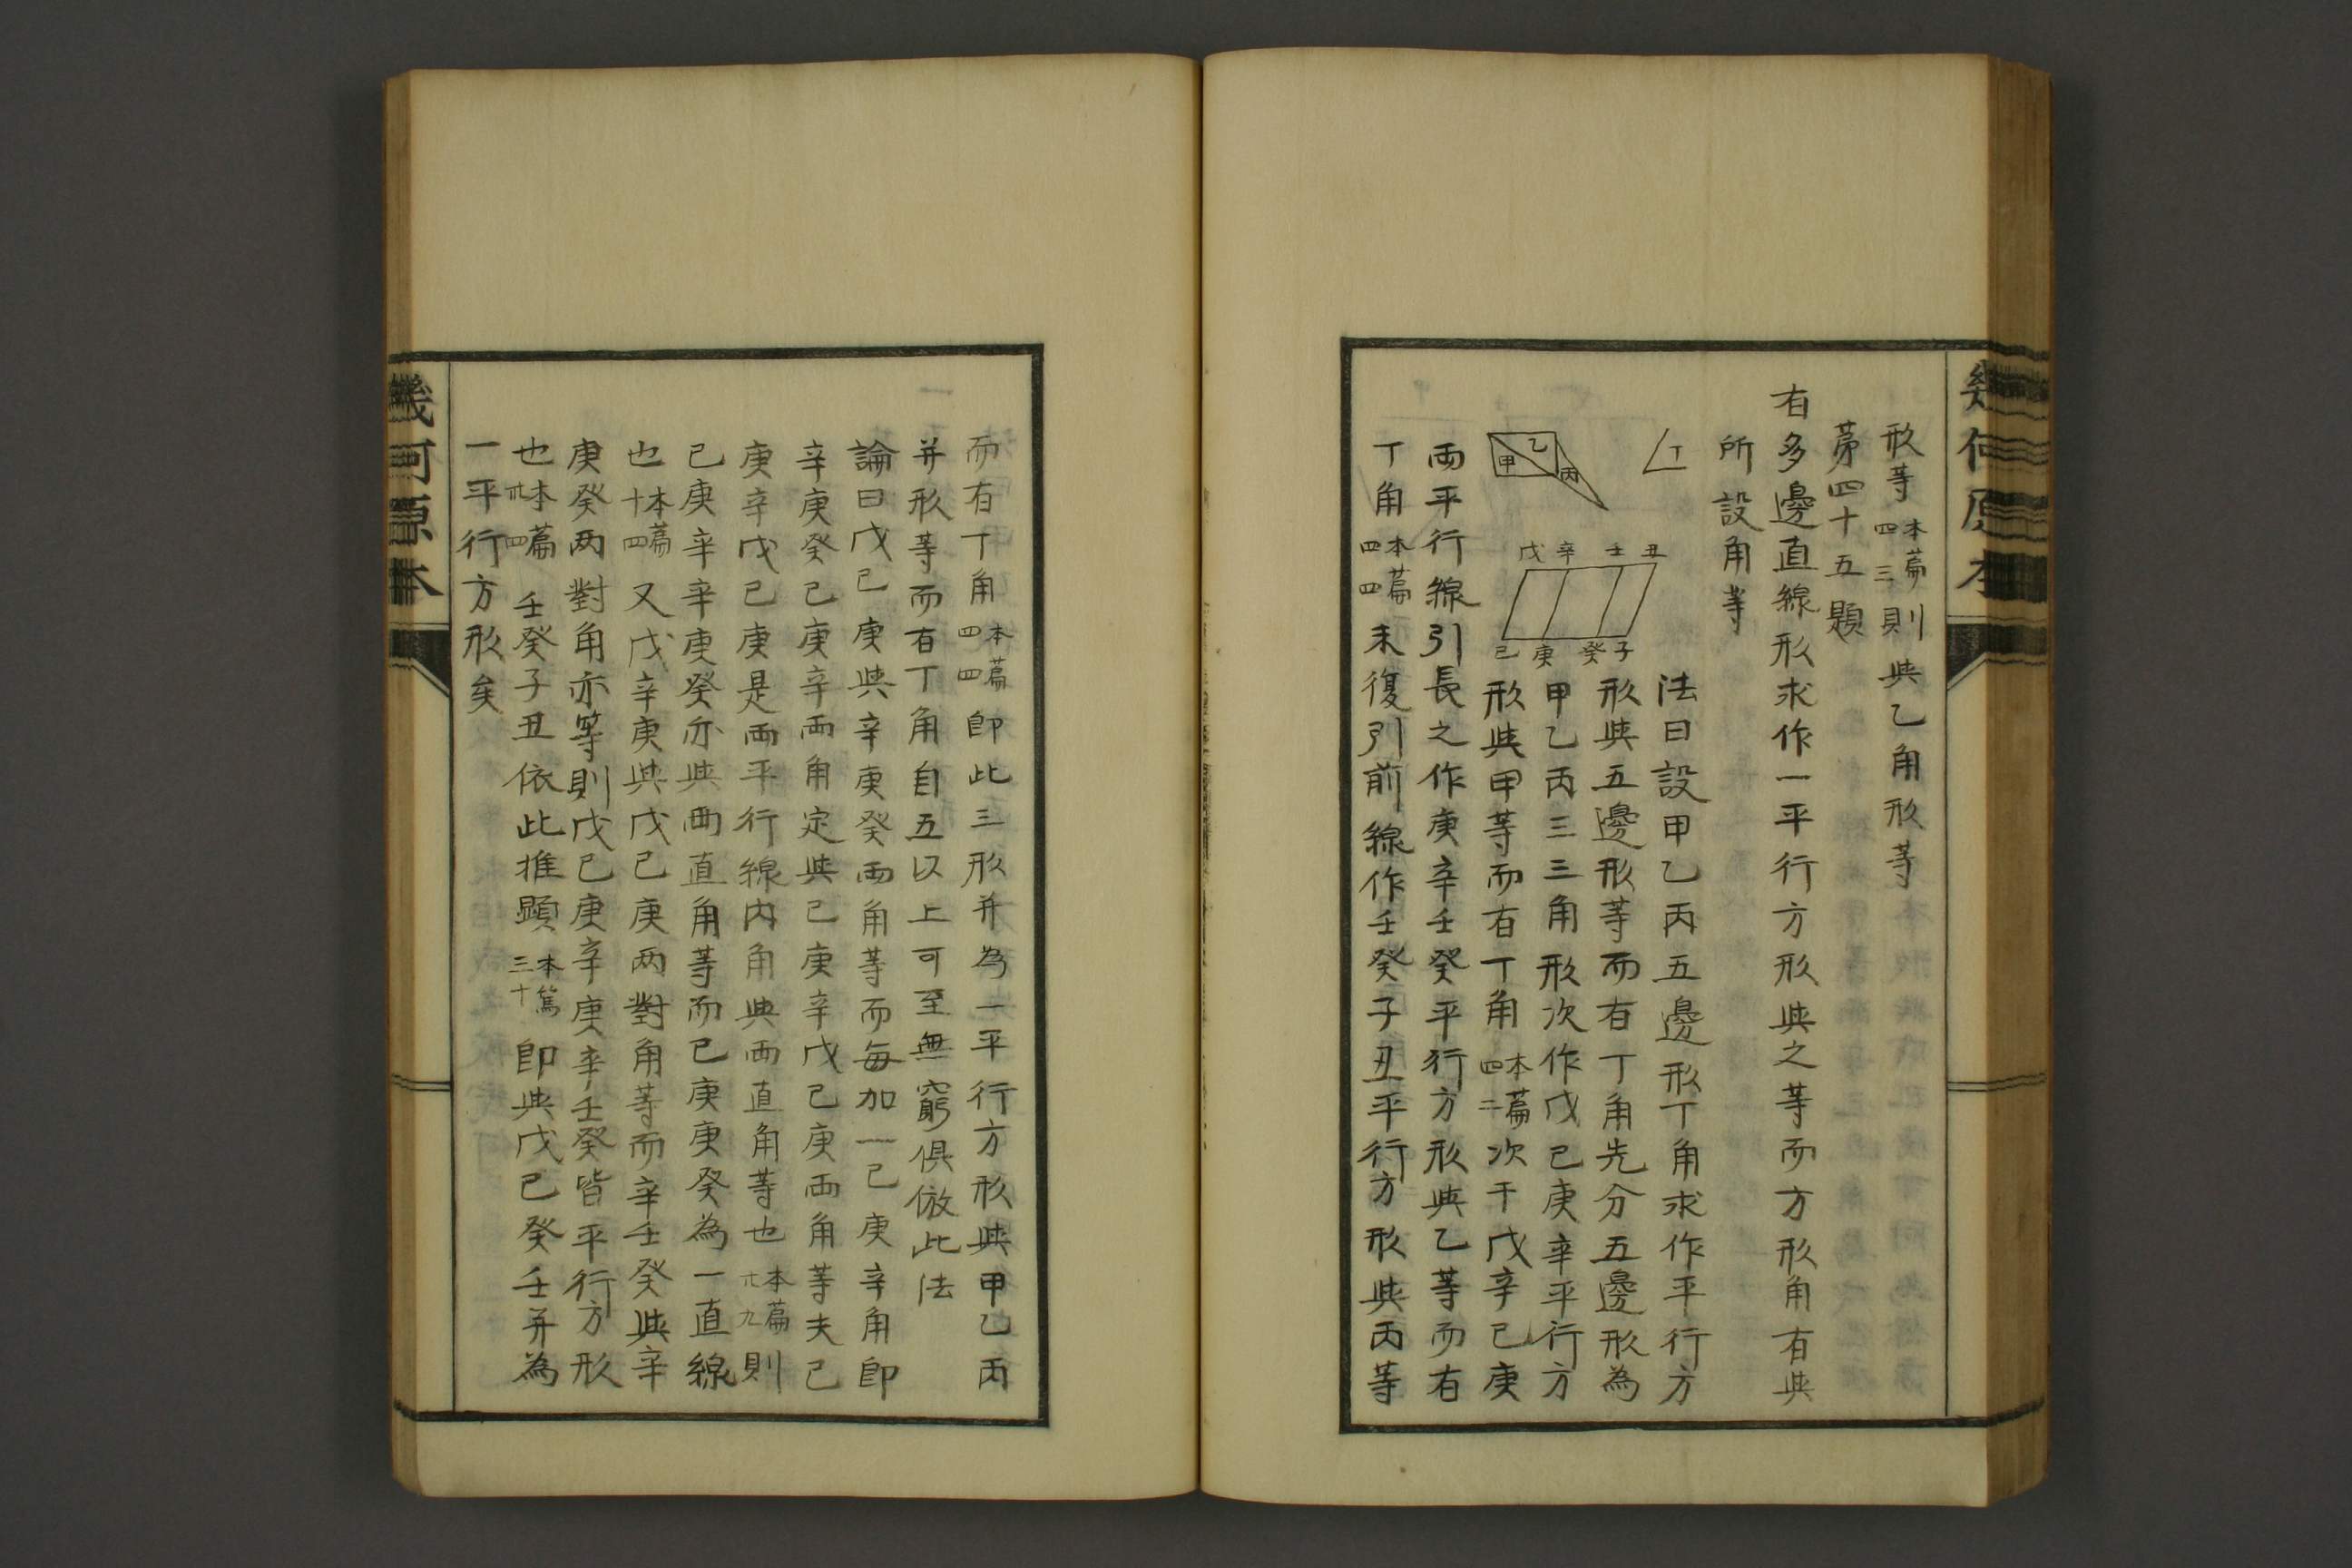 形等本篇四三則與乙角形等
第四十五題
有多邊直線形求作一平行方形與之等而方形角有與
所設角等
丁
乙
甲
丙
戊辛壬丑
己庚癸子
法曰設甲乙丙五邊形丁角求作平行方
形與五邊形等而有丁角先分五邊形為
甲乙丙三三角形次作戊己庚辛平行方
形與甲等而有丁角本篇四二次于戊辛己庚
兩平行線引長之作庚辛壬癸平行方形與乙等而有
丁角本篇四四末復引前線作壬癸子丑平行方形與丙等
幾何原本
而有丁角本篇四四即此三形并為一平行方形與甲乙丙
并形等而有丁角自五以上可至無窮俱倣此法
論曰戊己庚與辛庚癸兩角等而每加一己庚辛角即
辛庚癸己庚辛兩角定與己庚辛戊己庚兩角等夫己
庚辛戊己庚是兩平行線內角與兩直角等也本篇廿九則
己庚辛辛庚癸亦與兩直角等而己庚庚癸為一直線
也本篇十四又戊辛庚與戊己庚兩對角等而辛壬癸與辛
庚癸兩對角亦等則戊己庚辛庚辛壬癸皆平行方形
也本篇卅四壬癸子丑依此推顯本篇三十即與戊己癸壬并為
一平行方形矣
幾何原本